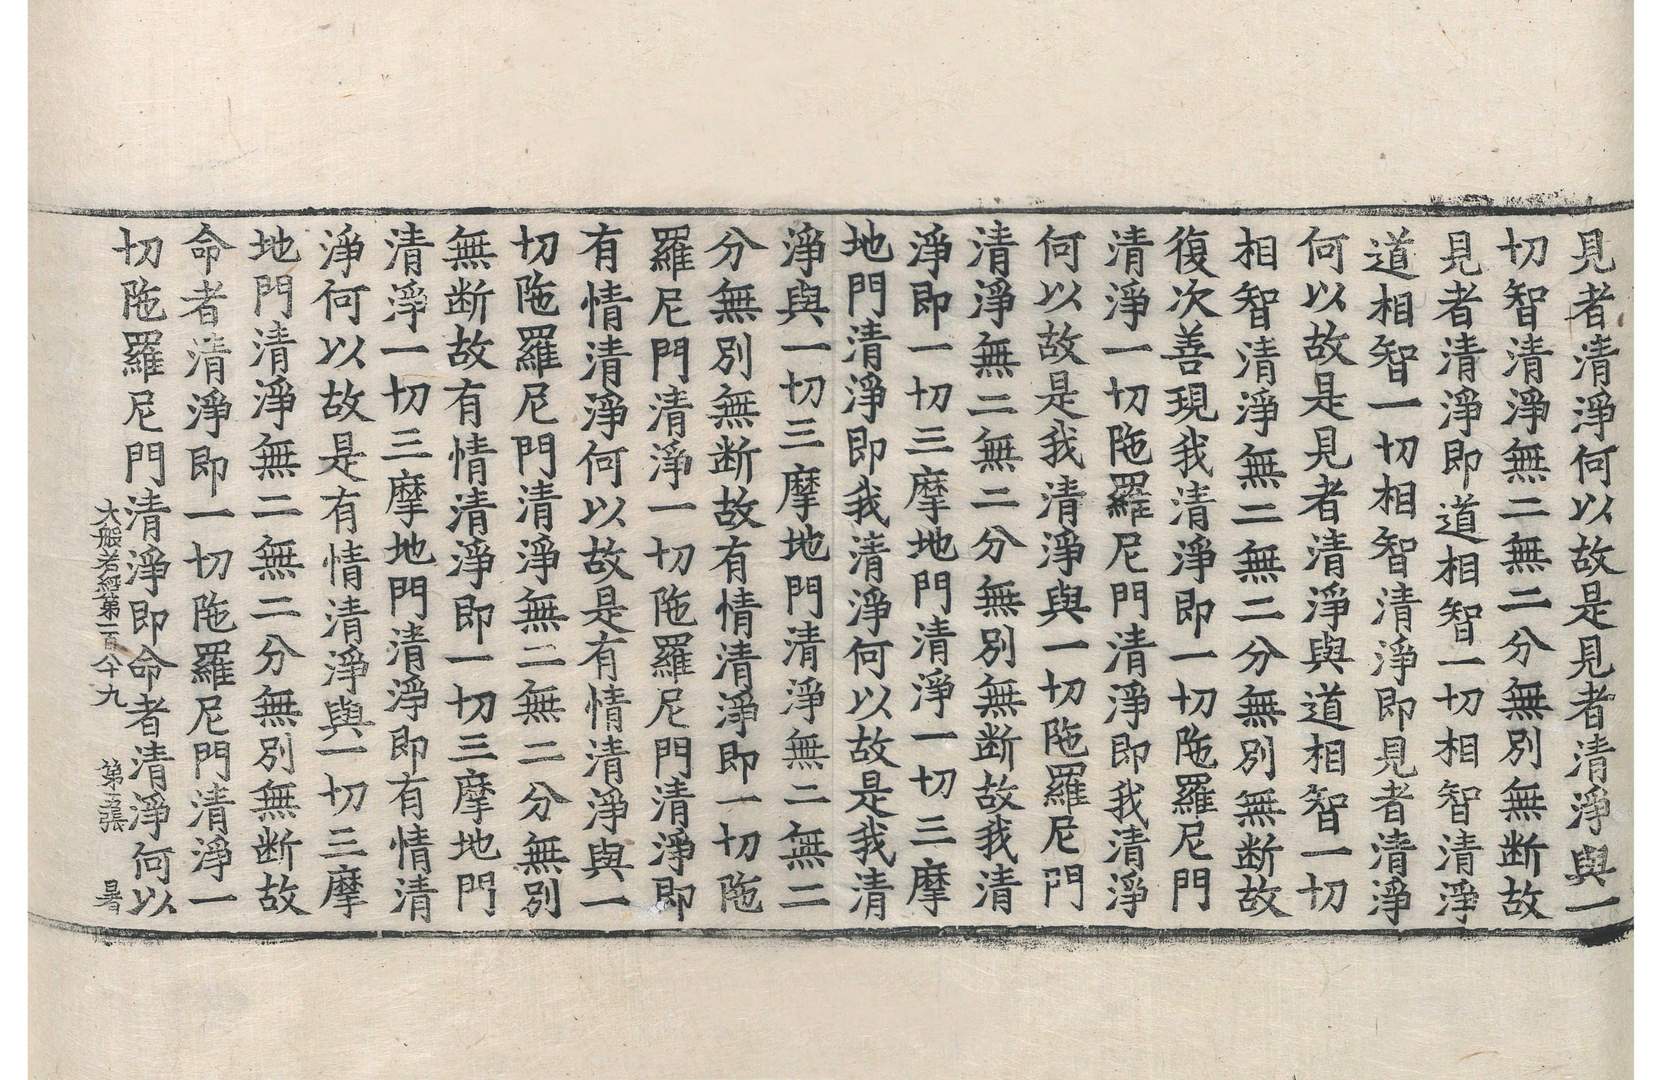 見者清淨何以故是見者清淨與一
切智清淨無二無二分無別無断故
見者清淨即道相智一切相智清淨
道相智一切相智清淨即見者清淨
何以故是見者清淨與道相智一切
相智清淨無二無二分無別無断故
復次善現我清淨即一切陁羅尼門
清淨一切陁羅尼門清淨即我清淨
何以故是我清淨與一切陁羅尼門
清淨無二無二分無別無断故我清
淨即一切三摩地門清淨一切三摩
地門清淨即我清淨何以故是我清
淨與一切三摩地門清淨無二無二
分無別無断故有情清淨即一切陁
羅尼門清淨一切陁羅尼門清淨即
有情清淨何以故是有情清淨與一
切陁羅尼門清淨無二無二分無別
無断故有情清淨即一切三摩地門
清淨一切三摩地門清淨即有情清
淨何以故是有情清淨與一切三摩
地門清淨無二無二分無別無断故
命者清淨即一切陁羅尼門清淨一
切陁羅尼門清淨即命者清淨何以
大般若經第一百八十九 第張 暑